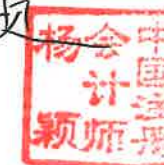 中国注册
会计师
杨颖